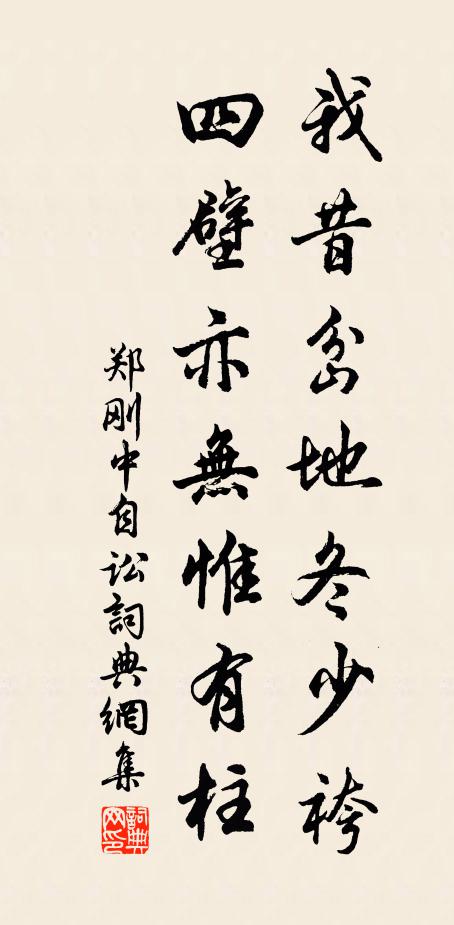 我昔岔地冬少袴
四壁亦無惟有柱
郑刚中自讼詞典網集
詞典网印